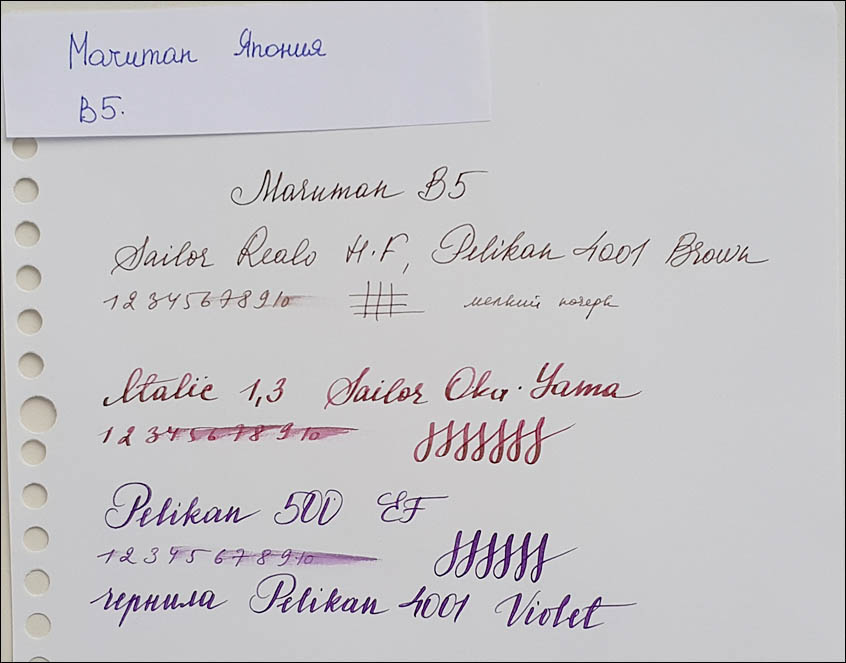 Maruman Япония
B5.
Maruman B5
Sailor Realo H.F, Pelikan 4001 Brown
1 2 3 4 5 6 7 8 9 10 мелкий почерк
Italic 1,3 Sailor Oku-Yama
1 2 3 4 5 6 7 8 9 10
Pelikan 500 EF
1 2 3 4 5 6 7 8 9 10
чернила Pelikan 4001 Violet